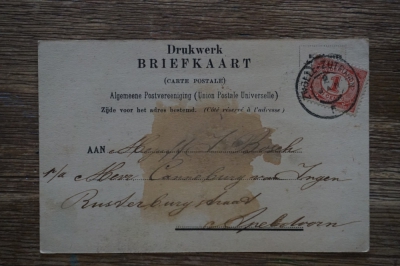 Drukwerk
BRIEFKAART
(CARTE POSTALE)
Algemeene Postvereeniging (Union Postale Universelle)
Zijde voor het adres bestemd. (Côté réservé à l'adresse)
1
AAN Bosch
p/a Mevr. Cannenburg van Ingen
Rusterburgstraat
Apeldoorn